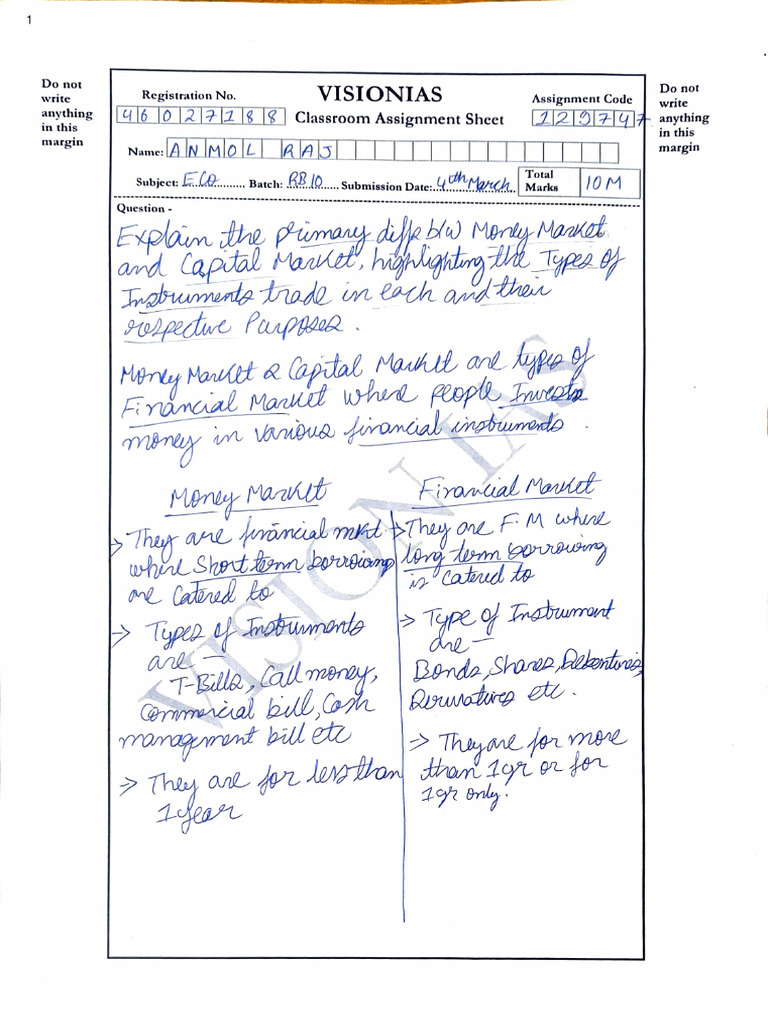 1
Do not
write
anything
in this
margin
Registration No.
46027188
VISIONIAS
Classroom Assignment Sheet
Assignment Code
129747
Do not
write
anything
in this
margin
Name: ANMOL RAJ
Subject: ECO Batch: RB10 Submission Date: 4th March
Total
Marks
10M
Question -
Explain the primary diff b/w Money Market
and Capital Market, highlighting the Types of
Instruments trade in each and their
respective Purposes.
Money Market & Capital Market are types of
Financial Market where people Invests
money in various financial instruments.
Money Market
-> They are financial mkt
where Short term borrowing
are Catered to
-> Types of Instruments
are —
T-Bills, Call money,
Commercial bill, Cash
management bill etc
=> They are for less than
1 year
Financial Market
-> They are F.M where
long term borrowing
is Catered to
-> Type of Instrument
are —
Bonds, Shares, Debentures,
Derivatives etc.
=> They are for more
than 1 yr or for
1 yr only.
VISION IAS